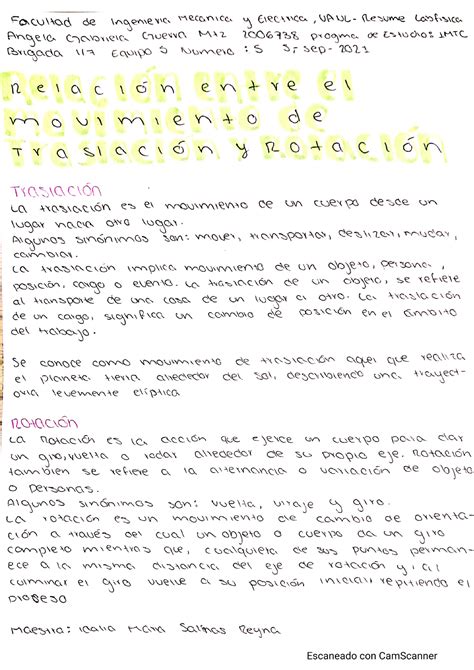 Facultad de Ingenieria Mecanica y Electrica, UANL - Resume Labfisica
Angela Gabriela Guerra Mtz 2006738 progma de Estudios: IMTC
Brigada 117 Equipo 5 Numero: 5 3, sep - 2021
Relación entre el
movimiento de
Traslación y Rotación
Traslación
La traslación es el movimiento de un cuerpo desde un
lugar hacia otro lugar.
Algunos sinónimos son: mover, transportar, deslizar, mudar,
cambiar.
La traslación implica movimiento de un objeto, persona,
posición, cargo o evento. La traslación de un objeto, se refiere
al transporte de una cosa de un lugar a otro. La traslación
de un cargo, significa un cambio de posición en el ámbito
del trabajo.
Se conoce como movimiento de traslación aquel que realiza
el planeta tierra alrededor del sol, describiendo una trayect-
oria levemente elíptica
Rotación
La Rotación es la acción que ejerce un cuerpo para dar
un giro, vuelta o rodar alrededor de su propio eje. Rotación
tambien se refiere a la alternancia o variación de objeto
o personas.
Algunos sinónimos son: vuelta, viraje y giro.
La rotación es un movimiento de cambio de orienta-
ción a través del cual un objeto o cuerpo da un giro
completo mientras que, cualquiera de sus puntos perman-
ece a la misma distancia del eje de rotación y, al
culminar el giro vuelve a su posición inicial repitiendo el
proceso
Maestra: Idalia Mara Salinas Reyna
Escaneado con CamScanner